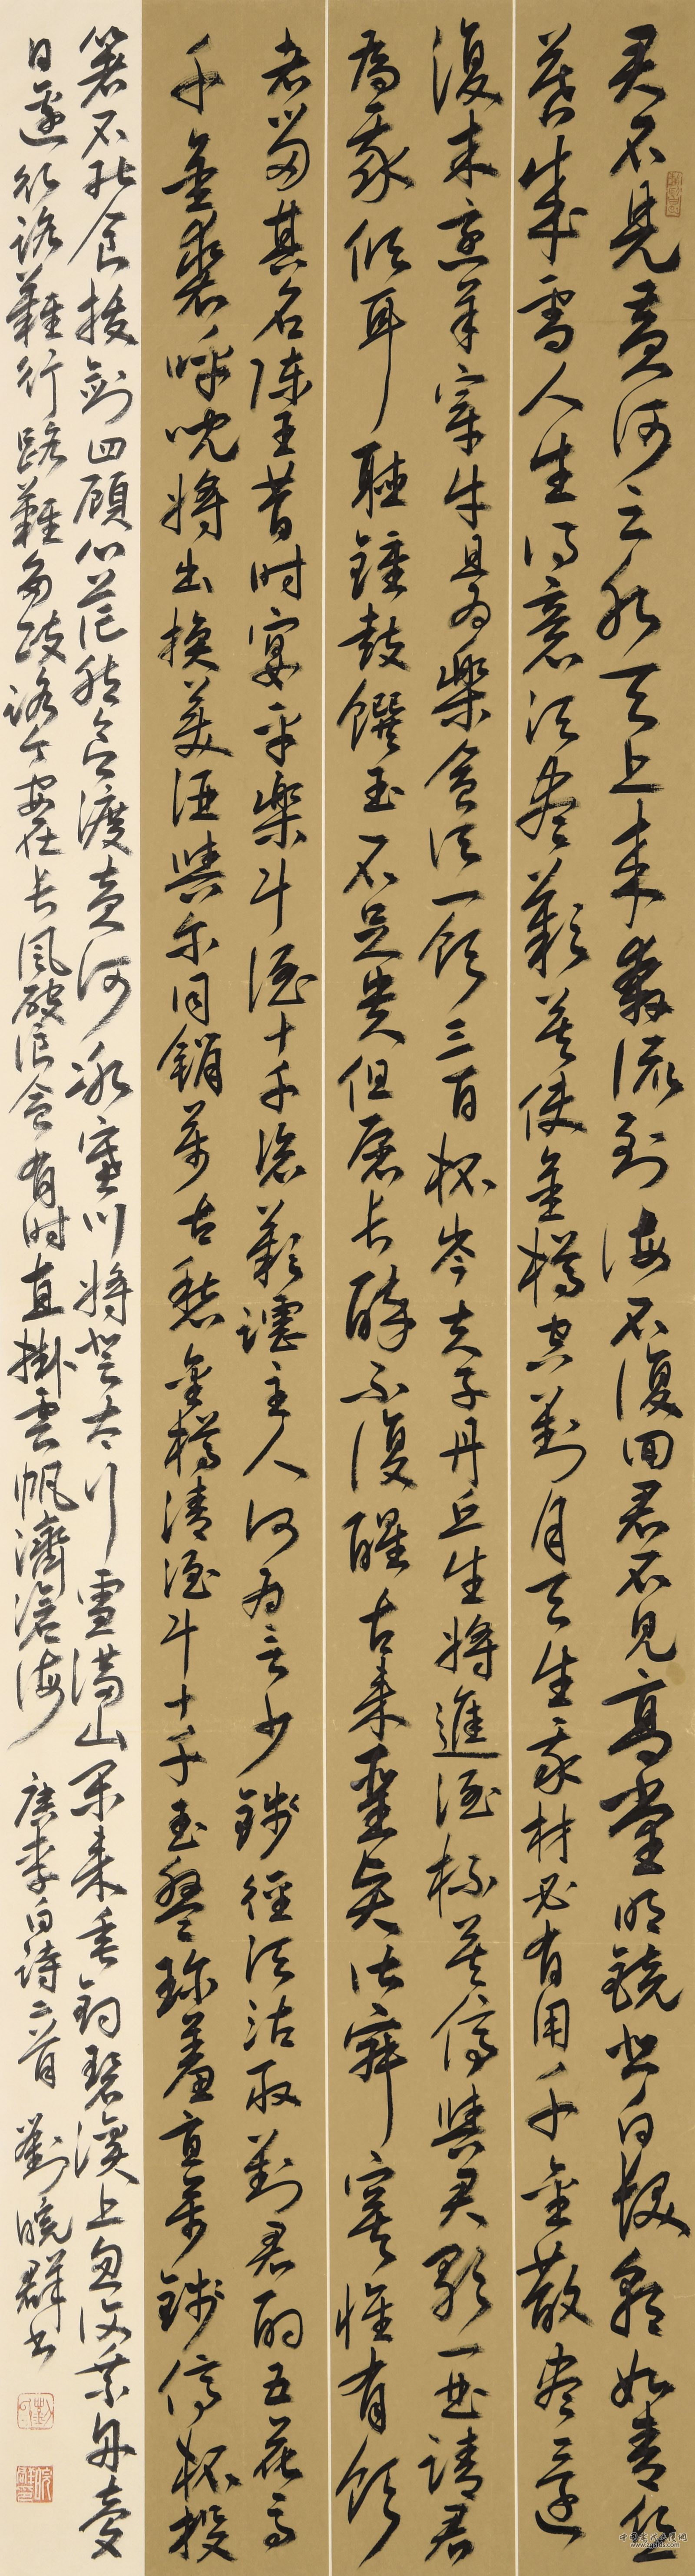 君不見黃河之水天上來奔流到海不復回君不見高堂明鏡悲白髮朝如青絲
暮成雪人生得意須盡歡莫使金樽空對月天生我材必有用千金散盡還
復來烹羊宰牛且為樂會須一飲三百杯岑夫子丹丘生將進酒杯莫停與君歌一曲請君
為我傾耳聽鐘鼓饌玉不足貴但願長醉不復醒古來聖賢皆寂寞惟有飲
者留其名陳王昔時宴平樂斗酒十千恣歡謔主人何為言少錢徑須沽取對君酌五花馬
千金裘呼兒將出換美酒與爾同銷萬古愁金樽清酒斗十千玉盤珍羞直萬錢停杯投
箸不能食拔劍四顧心茫然欲渡黃河冰塞川將登太行雪滿山閑來垂釣碧溪上忽復乘舟夢
日邊行路難行路難多歧路今安在長風破浪會有時直掛雲帆濟滄海 唐李白詩二首 劉曉群書